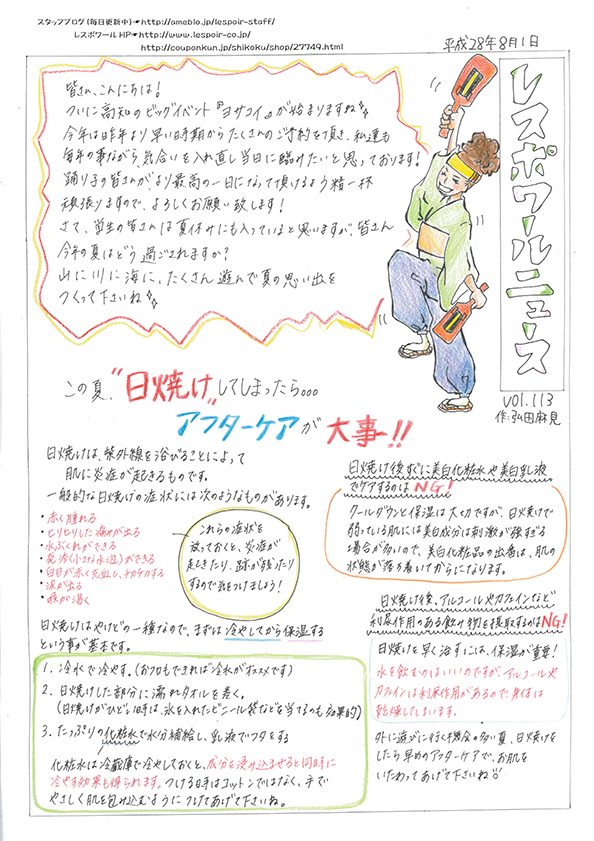 スタッフブログ(毎日更新中)☞http://ameblo.jp/lespoir-staff/
レスポワール HP☞http://www.lespoir-co.jp/
http://couponkun.jp/shikoku/shop/27749.html
平成28年8月1日
レスポワールニュース
vol.113
作:弘田麻見
皆さん、こんにちは!
ついに高知のビッグイベント『ヨサコイ』が始まりますね
今年は昨年より早い時期からたくさんのご予約を頂き、私達も
毎年の事ながら、気合いを入れ直し当日に臨みたいと思っております!
踊り子の皆さんがより最高の一日になって頂けるよう精一杯
頑張りますので、よろしくお願い致します!
さて、学生の皆さんは夏休みにも入っていると思いますが、皆さん
今年の夏はどう過ごされますか?
山に川に海に、たくさん遊んで夏の思い出を
つくって下さいね
この夏、"日焼け"してしまったら。。。
アフターケアが大事!!
日焼けは、紫外線を浴びることによって
肌に炎症が起きるものです。
一般的な日焼けの症状には次のようなものがあります。
・赤く腫れる
・ヒリヒリした痛みが出る
・水ぶくれができる
・発疹(小さな水辺)ができる
・白目が赤く充血し、チカチカする
・涙が出る
・喉が渇く
これらの症状を
放っておくと、炎症が
起きたり、跡が残ったり
するので気をつけましょう!
日焼けはやけどの一種なので、まずは冷やしてから保湿する
という事が基本です。
1. 冷水で冷やす。(お風呂もできれば冷水がオススメです)
2. 日焼けした部分に濡れタオルを巻く。
(日焼けがひどい時は、氷を入れたビニール袋などを当てるのも効果的)
3. たっぷりの化粧水で水分補給し、乳液でフタをする
化粧水は冷蔵庫で冷やしておくと、成分を浸み込ませると同時に
冷やす効果も得られます。つける時はコットンではなく、手で
やさしく肌を包み込むようにつけてあげて下さいね。
日焼け後すぐに美白化粧水や美白乳液
でケアするのはNG!
クールダウンと保湿は大切ですが、日焼けで
弱っている肌には美白成分は刺激が強すぎる
場合が多いので、美白化粧品の出番は、肌の
状態が落ち着いてからになります。
日焼け後、アルコールやカフェインなど
利尿作用のある飲み物を摂取するのはNG!
日焼けを早く治すには、保湿が重要!
水を飲むのはいいのですが、アルコールや
カフェインは利尿作用があるので身体は
乾燥してしまいます。
外に遊びに行く機会の多い夏、日焼けを
したら早めのアフターケアで、お肌を
いたわってあげて下さいね